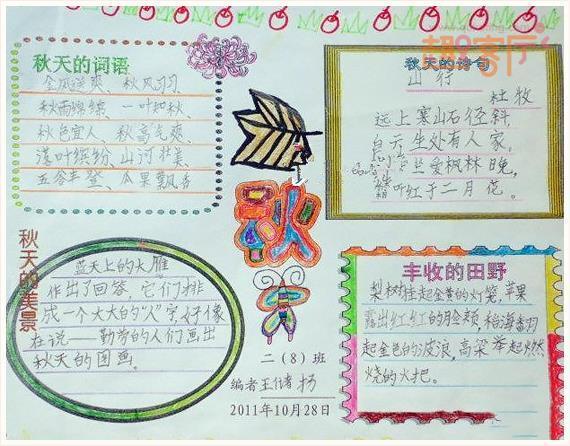 趣客厅
秋天的词语
金风送爽、秋风习习
秋雨绵绵、一叶知秋、
秋色宜人、秋高气爽、
落叶缤纷、山河壮美、
五谷丰登、瓜果飘香
秋天的诗句
山行
杜牧
远上寒山石径斜,
白云生处有人家。
爱枫林晚,
霜叶红于二月花。
秋
秋天的美景
蓝天上的大雁
作出了回答,它们排
成一个大大的"人"字,好像
在说——勤劳的人们画出
秋天的图画。
丰收的田野
梨树挂起金黄的灯笼,苹果
露出红红的脸颊,稻海翻
起金色的波浪,高粱举起燃
烧的火把。
二(8)班
编者
2011年10月28日